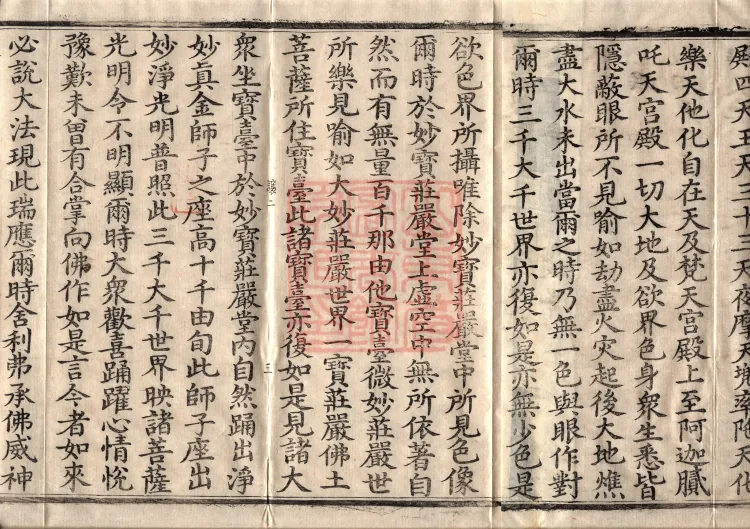 殿四天王天三十三天夜摩天兜率陀天化
樂天他化自在天及梵天宮殿上至阿迦膩
吒天宮殿一切大地及欲界色身衆生悉皆
隱蔽眼所不見喻如劫盡火灾起後大地燋
盡大水未出當爾之時乃無一色與眼作對
爾時三千大千世界亦復如是亦無少色是
欲色界所攝唯除妙寶莊嚴堂中所見色像
爾時於妙寶莊嚴堂上虛空中無所依著自
然而有無量百千那由他寶臺微妙莊嚴世
所樂見喻如大妙莊嚴世界一寶莊嚴佛土
菩薩所住寶臺此諸寶臺亦復如是見諸大
二 三
衆坐寶臺中於妙寶莊嚴堂內自然踊出淨
妙真金師子之座高十千由旬此師子座出
妙淨光明普照此三千大千世界映諸菩薩
光明令不明顯爾時大衆歡喜踊躍心情恱
豫歎未曾有合掌向佛作如是言今者如來
必說大法現此瑞應爾時舍利弗承佛威神